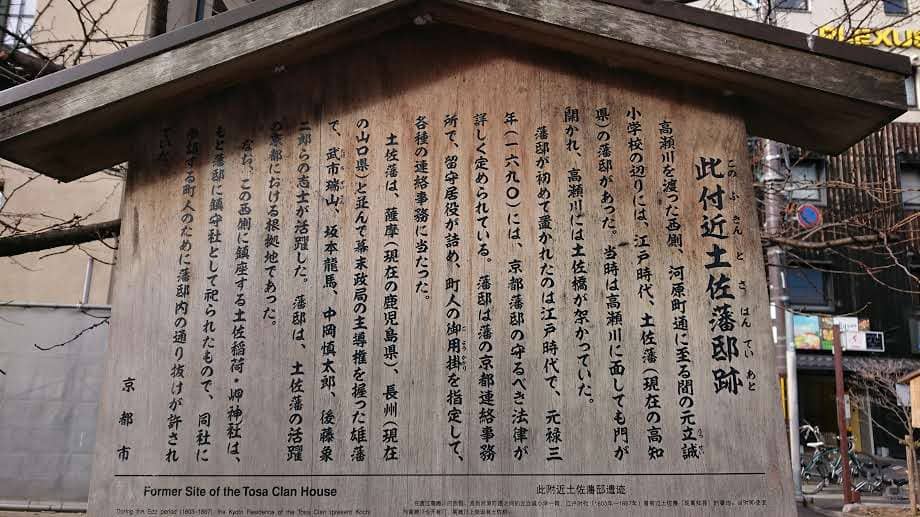 此付近土佐藩邸跡
このふきんとさはんていあと
高瀬川を渡った西側、河原町通に至る間の元立誠
りっせい
小学校の辺りには、江戸時代、土佐藩(現在の高知
県)の藩邸があった。当時は高瀬川に面しても門が
開かれ、高瀬川には土佐橋が架かっていた。
藩邸が初めて置かれたのは江戸時代で、元禄三
年(一六九〇)には、京都藩邸の守るべき法律が
詳しく定められている。藩邸は藩の京都連絡事務
所で、留守居役が詰め、町人の御用掛を指定して、
ごようかかり
各種の連絡事務に当たった。
土佐藩は、薩摩(現在の鹿児島県)、長州(現在
の山口県)と並んで幕末政局の主導権を握った雄藩
で、武市瑞山、坂本龍馬、中岡慎太郎、後藤象
二郎らの志士が活躍した。藩邸は、土佐藩の活躍
の京都における根拠地であった。
なお、この西側に鎮座する土佐稲荷・岬神社は、
もと藩邸に鎮守社として祀られたもので、同社に
参詣する町人のために藩邸内の通り抜けが許され
ていた。
京都市
Former Site of the Tosa Clan House
During the Edo period (1603-1867), the Kyoto Residence of the Tosa Clan (present Kochi
此附近土佐藩邸遺迹
PLEXUS